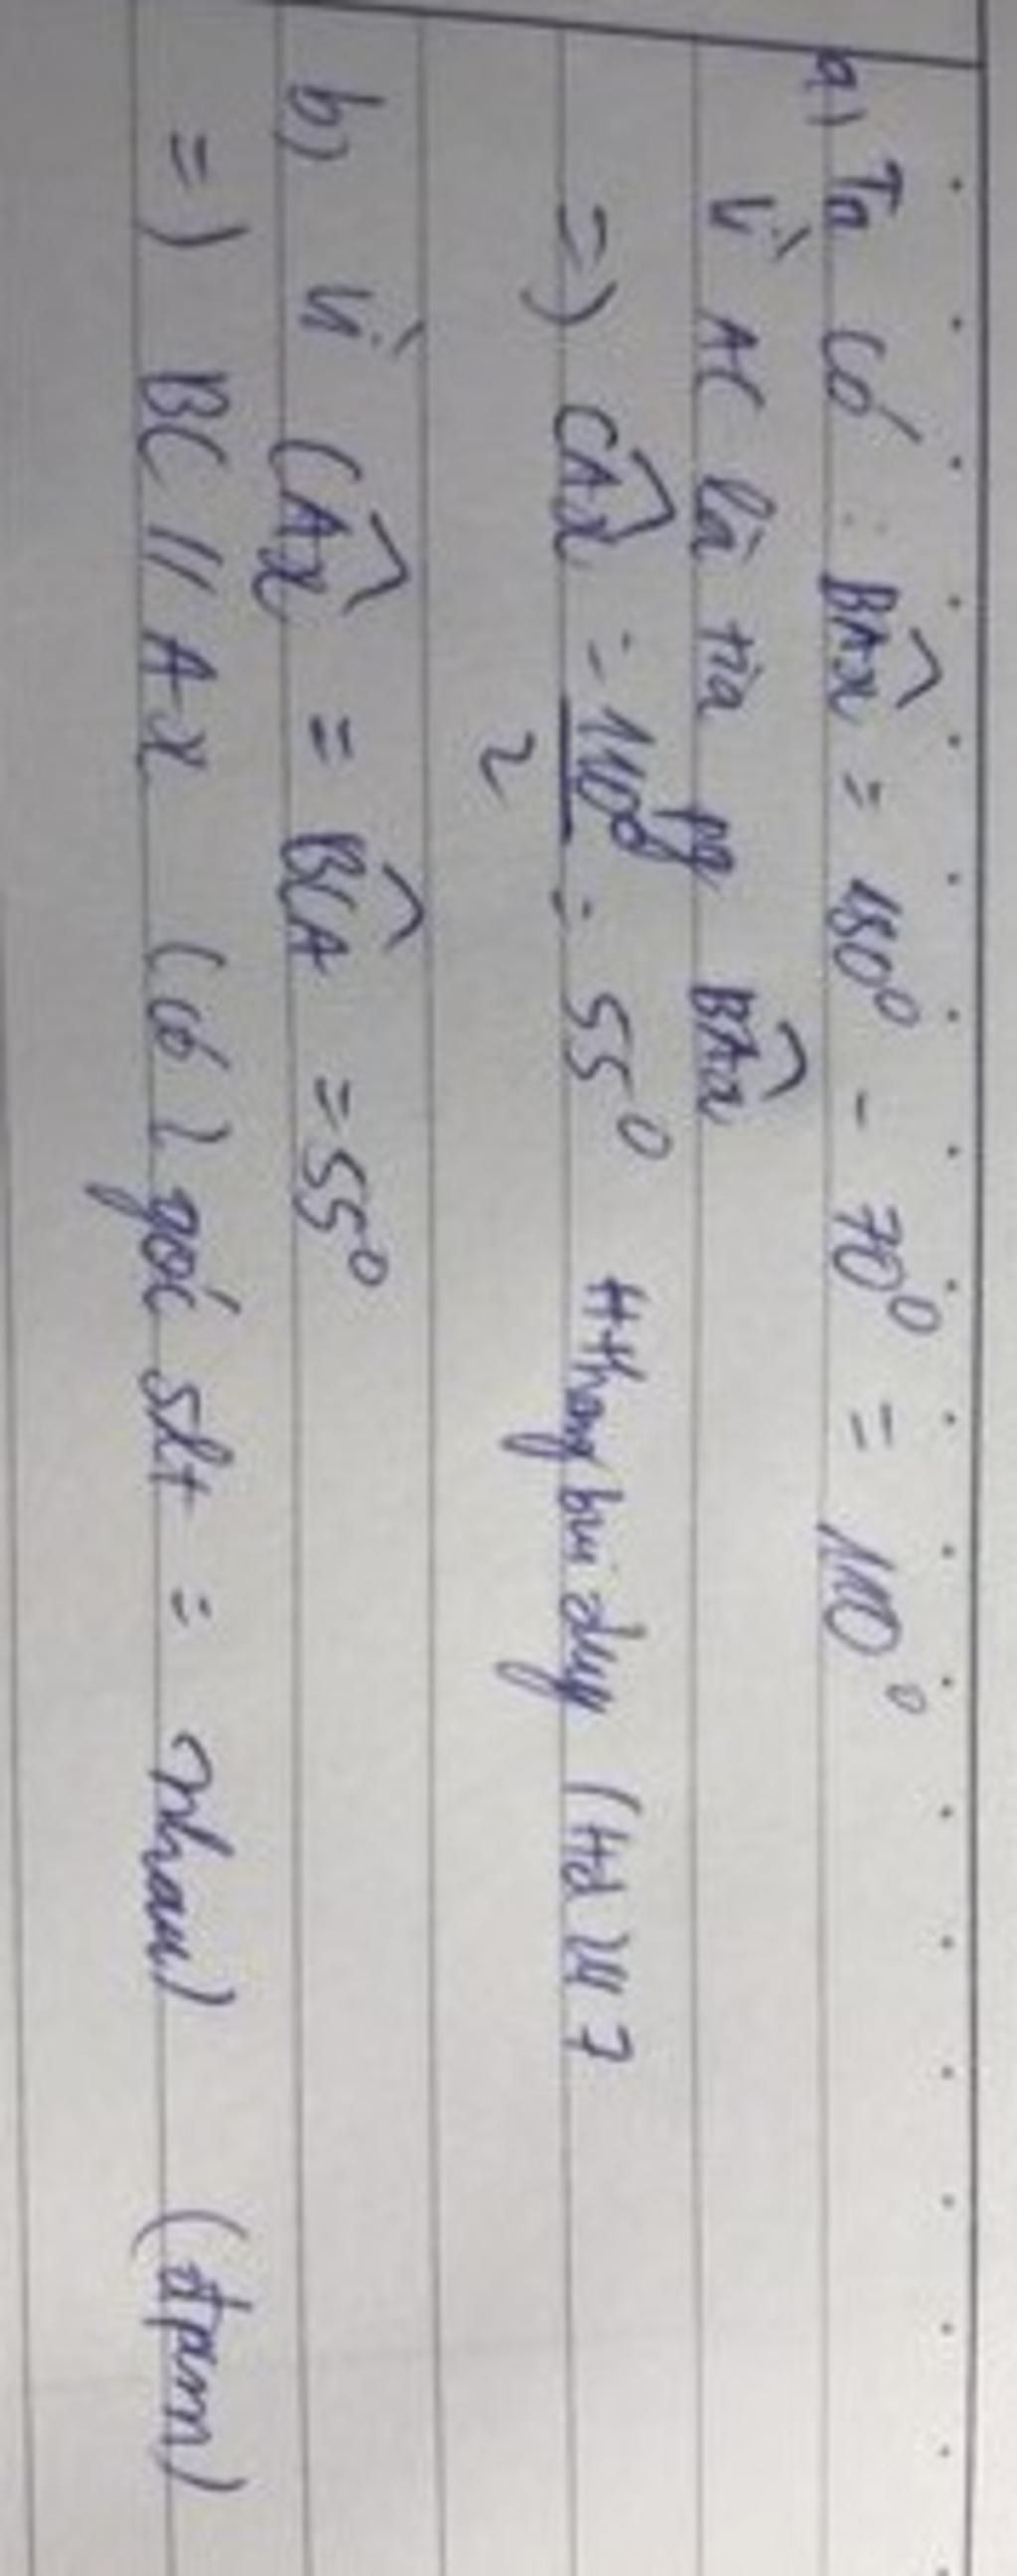 a) Ta có : BAx = 180° - 70° = 110°
Vì AC là tia pg BAx
=) CAx = 110° = 55° Hthang bui duy (Hd 247
2
b) Vì CAx = BCA = 55°
=) BC // Ax (có 2 góc slt = nhau) (đpcm)